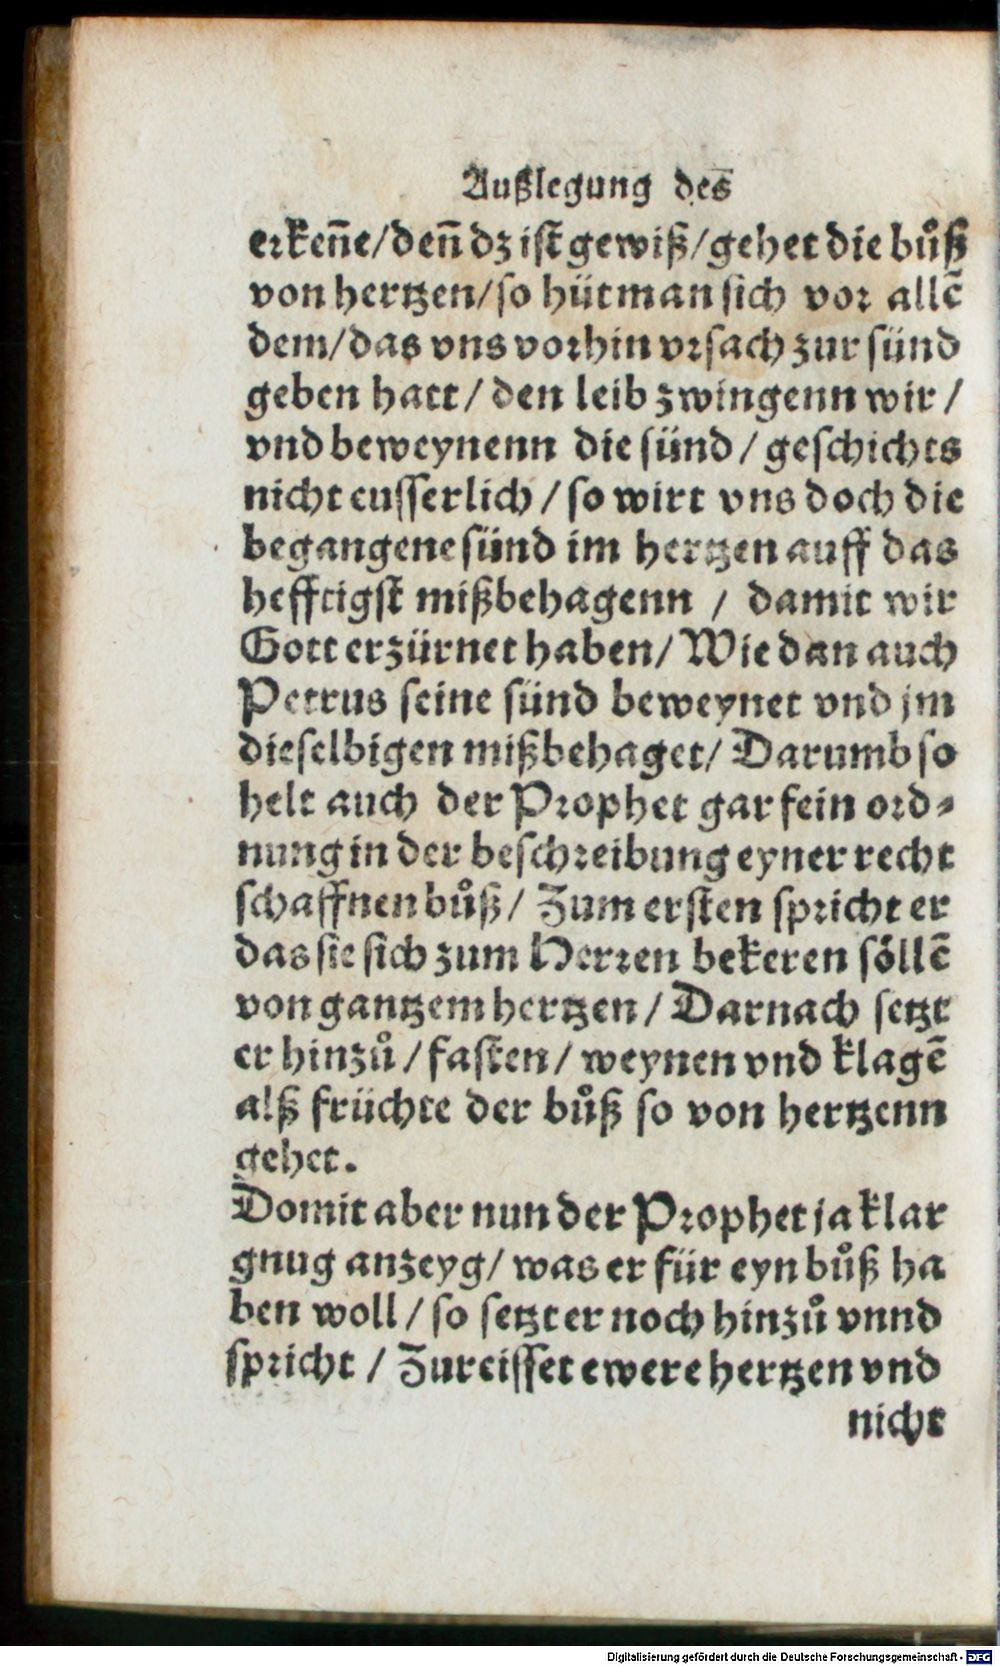 Außlegung des
erkeñe/deñ dz ist gewiß/gehet die bůß
von hertzen/so hüt man sich vor allē
dem/das vns vorhin vrsach zur sünd
geben hatt/den leib zwingenn wir/
vnd beweynenn die sünd/geschichts
nicht eusserlich/so wirt vns doch die
begangene sünd im hertzen auff das
hefftigst mißbehagenn / damit wir
Gott erzürnet haben/Wie dan auch
Petrus seine sünd beweynet vnd jm
dieselbigen mißbehaget/Darumb so
helt auch der Prophet gar fein ord⸗
nung in der beschreibung eyner recht
schaffnen bůß/Zum ersten spricht er
das sie sich zum Herren bekeren söllē
von gantzem hertzen/Darnach setzt
er hinzů/fasten/weynen vnd klagē
alß früchte der bůß so von hertzenn
gehet.
Domit aber nun der Prophet ja klar
gnug anzeyg/was er für eyn bůß ha
ben woll/so setzt er noch hinzů vnnd
spricht/Zureisset ewere hertzen vnd
nicht
Digitalisierung gefördert durch die Deutsche Forschungsgemeinschaft - DFG